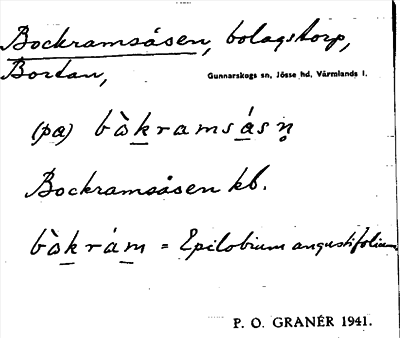 Bockramsåsen, bolagstorp,
Bortan,
Gunnarskogs sn, Jösse hd, Värmlands l.
(pa) bò̀kramsásn̥
Bockramsåsen kb.
bò̀krám = Epilobium angustifolium
P. O. GRANÉR 1941.